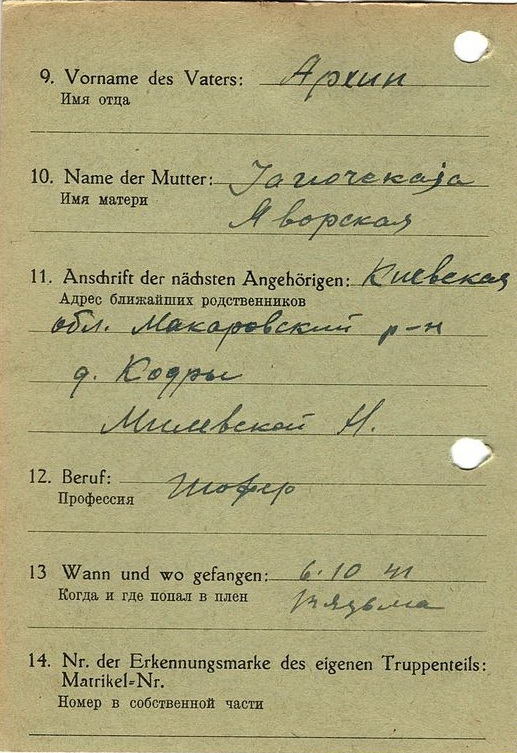 9. Vorname des Vaters: Архип
Имя отца
10. Name der Mutter:
Имя матери
Яворская
11. Anschrift der nächsten Angehörigen: Киевская
Адрес ближайших родственников
обл. Макаровский р-н
д. Кодры
Милевской Н.
12. Beruf: Шофер
Профессия
13 Wann und wo gefangen: 6.10 41
Когда и где попал в плен Вязьма
14. Nr. der Erkennungsmarke des eigenen Truppenteils:
Matrikel-Nr.
Номер в собственной части